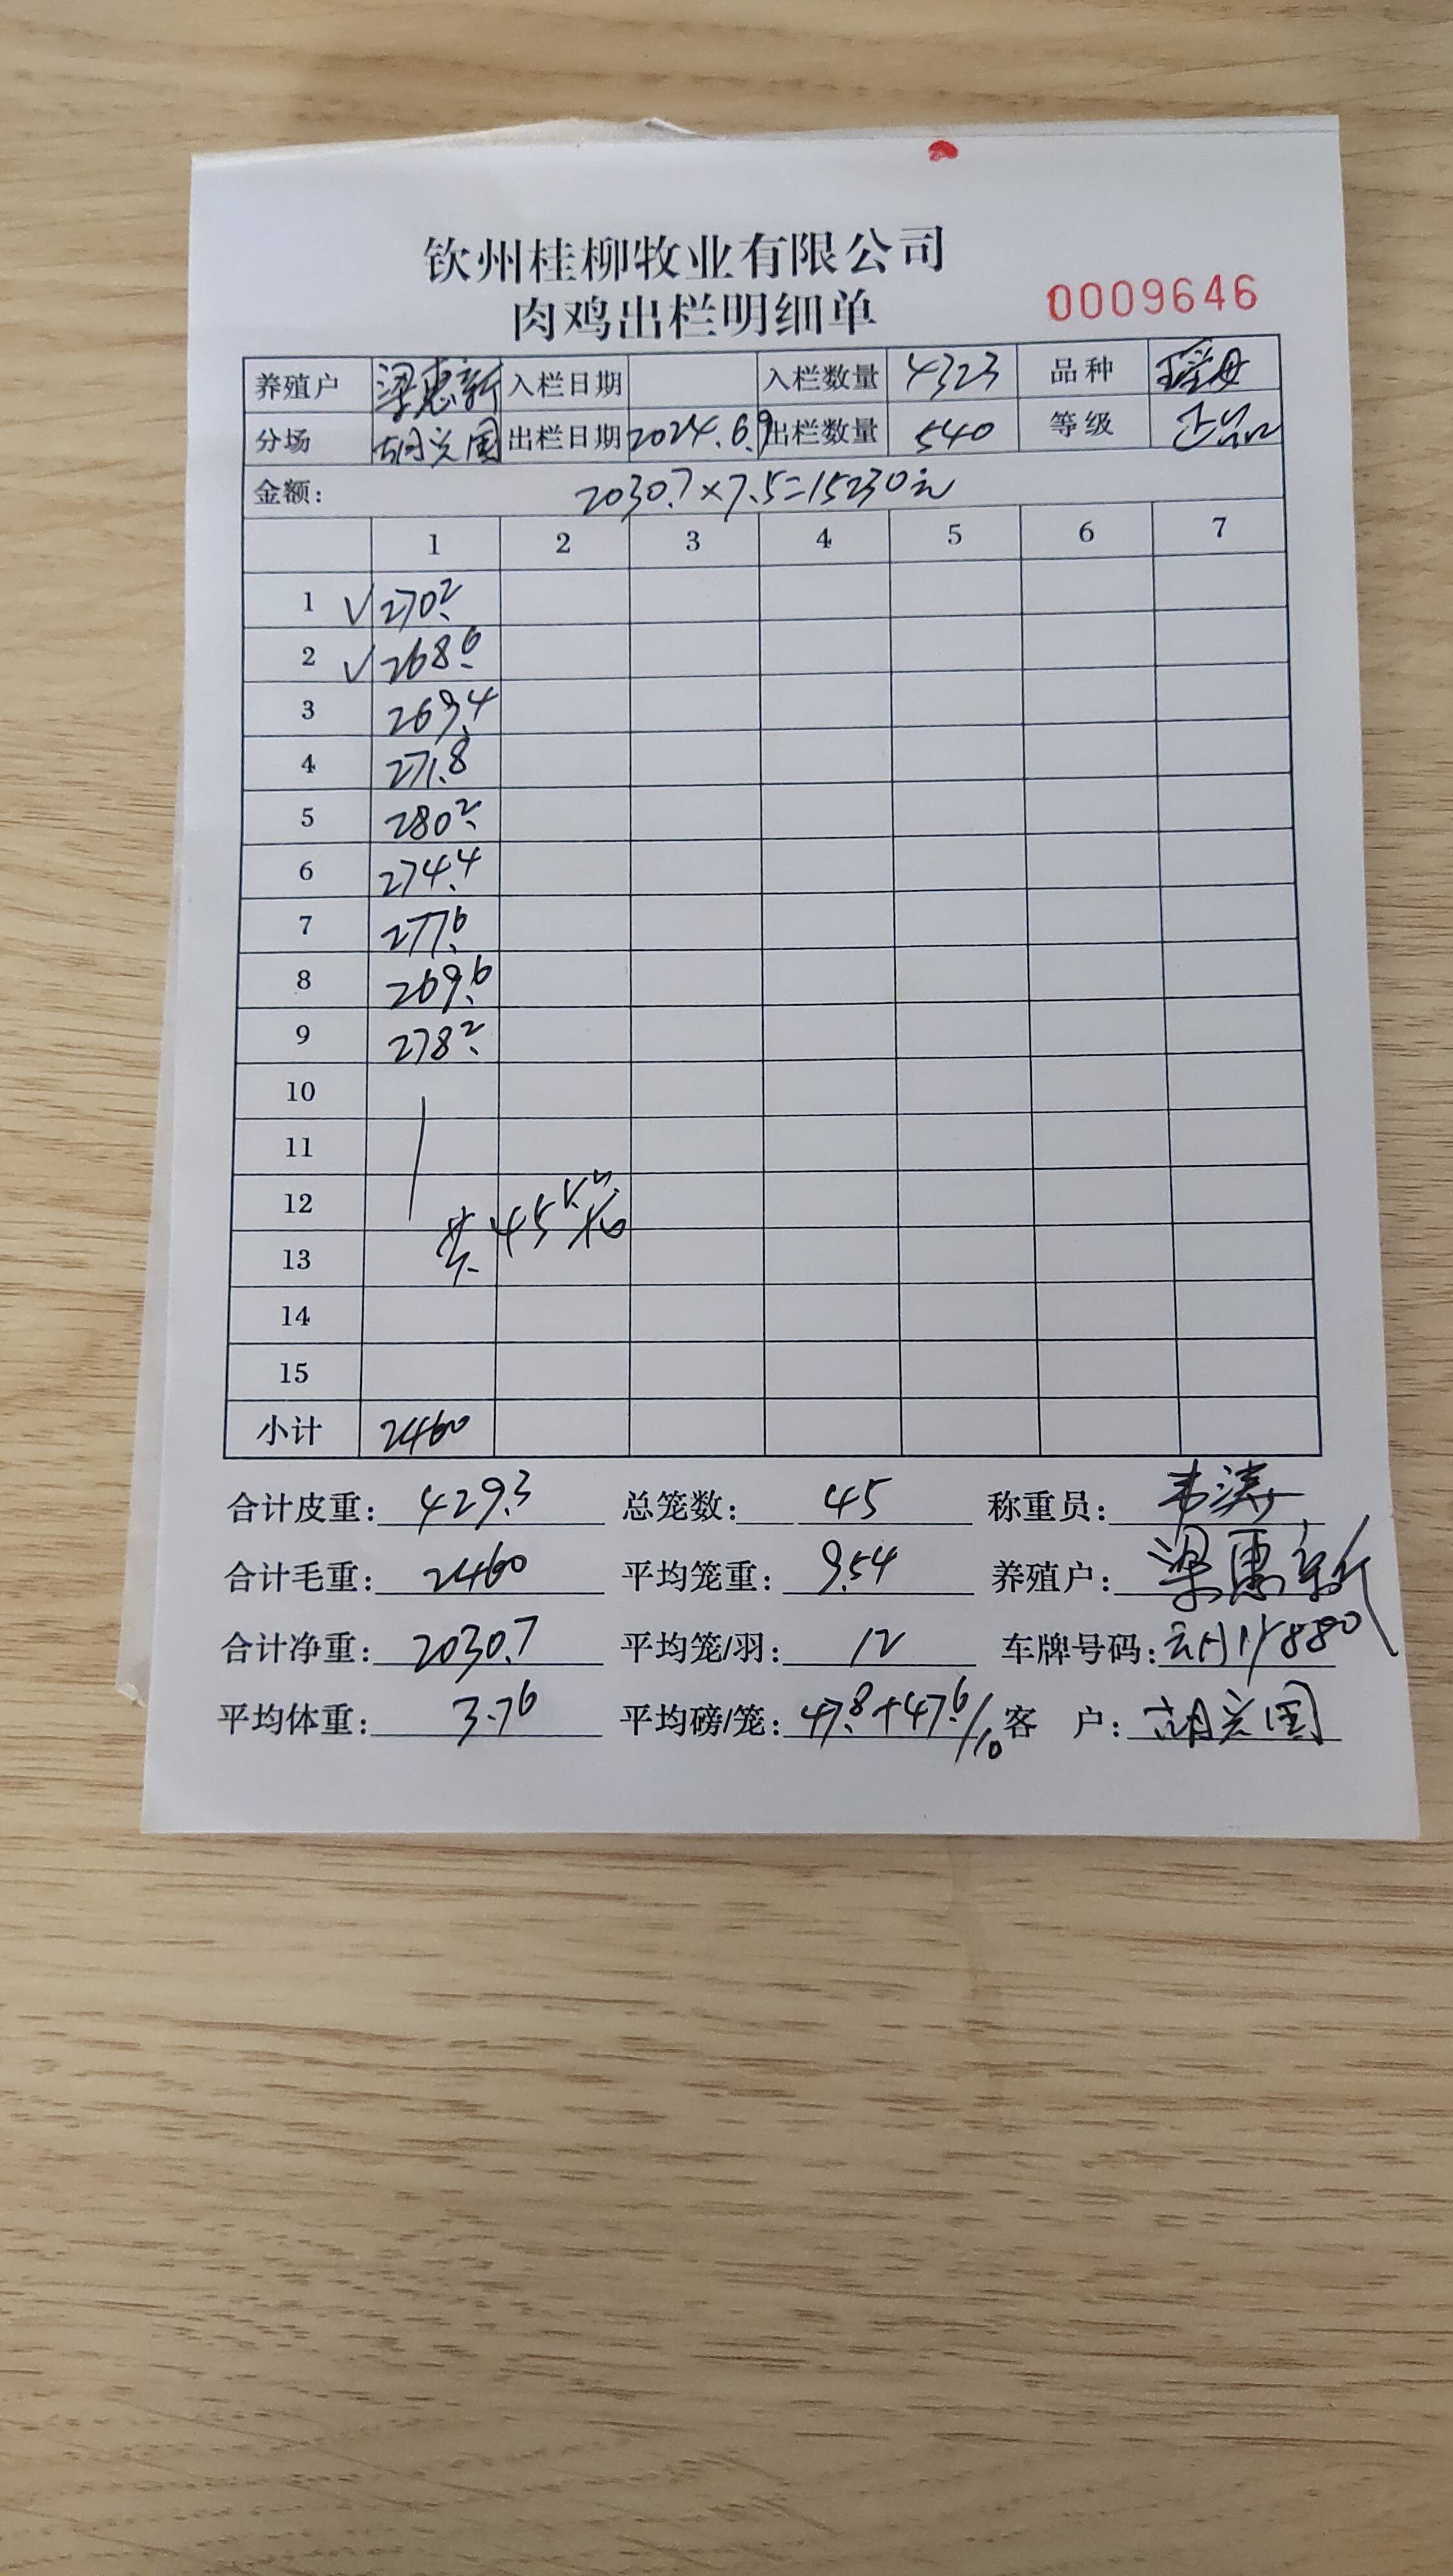 钦州桂柳牧业有限公司
肉鸡出栏明细单
0009646
养殖户 梁惠新 入栏日期 入栏数量 4323 品种 瑶母
分场 胡兴国 出栏日期 2024.6.9 出栏数量 540 等级 正品
金额: 2030.7×7.5=15230元
1 2 3 4 5 6 7
1 √ 270.2
2 √ 268.6
3 269.4
4 271.8
5 280.2
6 274.4
7 277.6
8 269.6
9 278.2
10
11
12
共45
13
14
15
小计 2460
合计皮重: 429.3 总笼数: 45 称重员: 韦涛
合计毛重: 2460 平均笼重: 9.54 养殖户: 梁惠新
合计净重: 2030.7 平均笼/羽: 12 车牌号码:
平均体重: 3.76 平均磅/笼: 47.8+47.6/10 客 户: 胡兴国